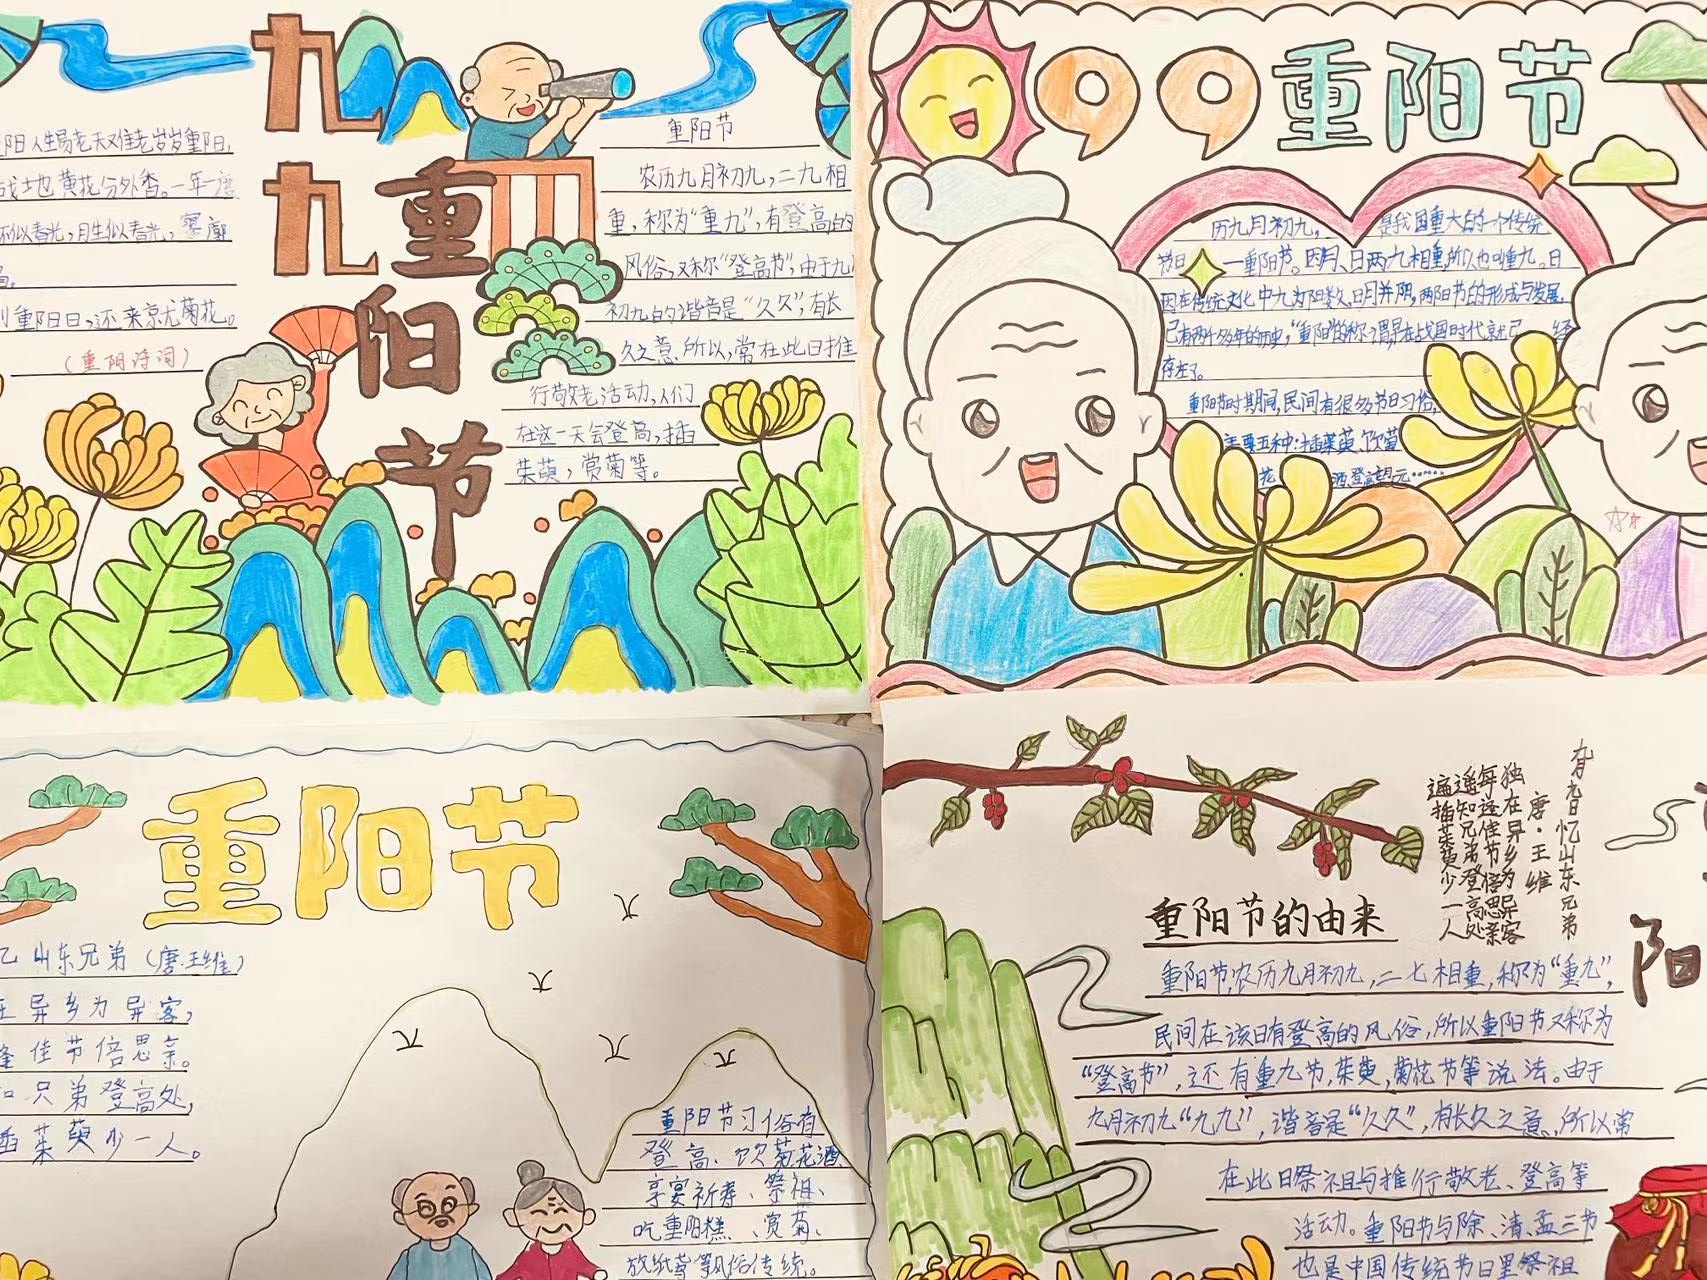 九九重阳节
阳人生易老天难老岁岁重阳,
战地黄花分外香。一年一度
不似春光,胜似春光,寥廓
到重阳日,还来京尤菊花。
(重阳诗词)
重阳节
农历九月初九,二九相
重,称为“重九”,有登高的
风俗,又称“登高节”,由于九
初九的谐音是“久久”,有长
久之意.所以,常在此日推
行敬老活动,人们
在这一天会登高,插
茱萸,赏菊等。
99重阳节
历九月初九, 是我国重大的一个传统
节日 一重阳节。因月、日两九相重,所以也叫重九。日
因在传统文化中九为阳数,日月并阴,两阳节的形成与发展,
已有两千多年的历史,“重阳”的称谓早在战国时代就已 经
存在了。
重阳节时期间,民间有很多节日习俗,
主要五种:插茱萸、饮菊
花 酒,登高望元……
重阳节
忆山东兄弟(唐.王维)
在异乡为异客,
逢佳节倍思亲。
知兄弟登高处,
插茱萸少一人。
重阳节习俗有
登高、饮菊花酒
享宴祈寿、祭祖、
吃重阳糕、赏菊、
放纸鸢等风俗传统。
九月九日忆山东兄弟
唐·王维
独在异乡为异客
每逢佳节倍思亲
遥知兄弟登高处
遍插茱萸少一人
重阳节的由来
重阳节,农历九月初九,二七相重,称为“重九”,
民间在该日有登高的风俗,所以重阳节又称为
“登高节”,还有重九节,茱萸,菊花节等说法。由于
九月初九“九九”,谐音是“久久”,有长久之意,所以常
在此日祭祖与推行敬老、登高等
活动。重阳节与除、清、盂三节
也是中国传统节日里祭祖
阳